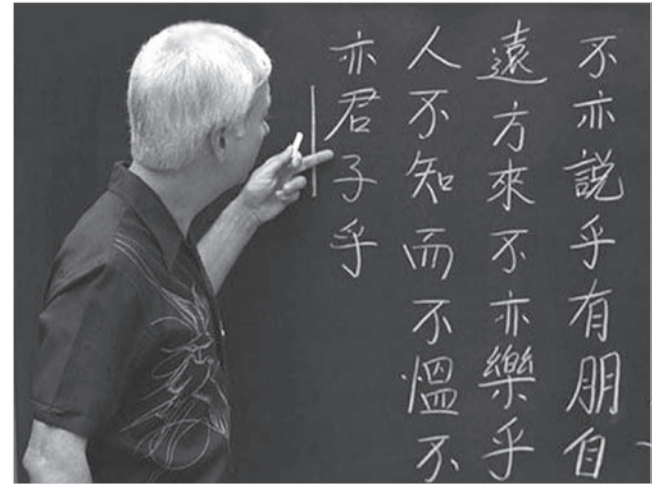 不亦説乎有朋自
遠方來不亦樂乎
人不知而不愠不
亦君子乎